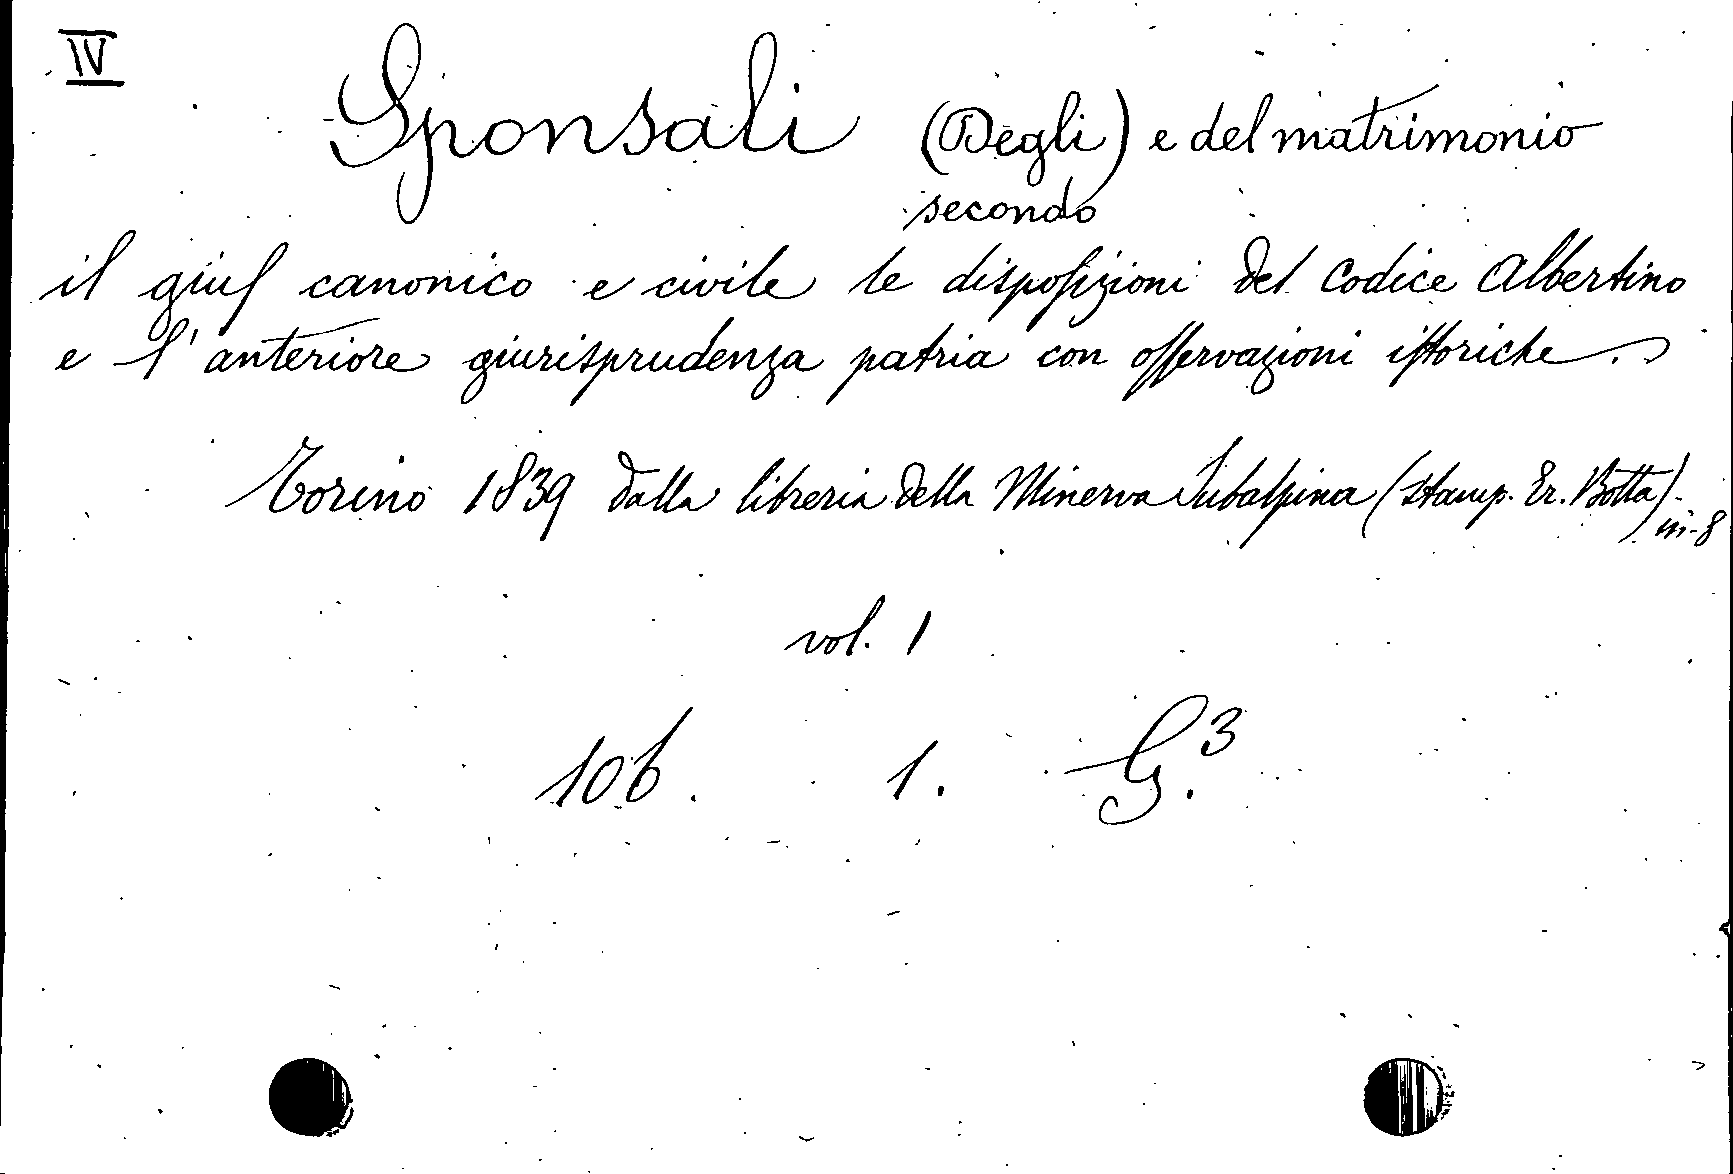 IV
Sponsali (Degli) e del matrimonio
secondo
il gius canonico e civile le disposizioni del codice Albertino
e l'anteriore giurisprudenza patria con osservazioni istoriche.
Torino 1839 dalla libreria della Minerva Subalpina (stamp. Er. Botta)-
in-8
vol. 1
106. 1. G.3